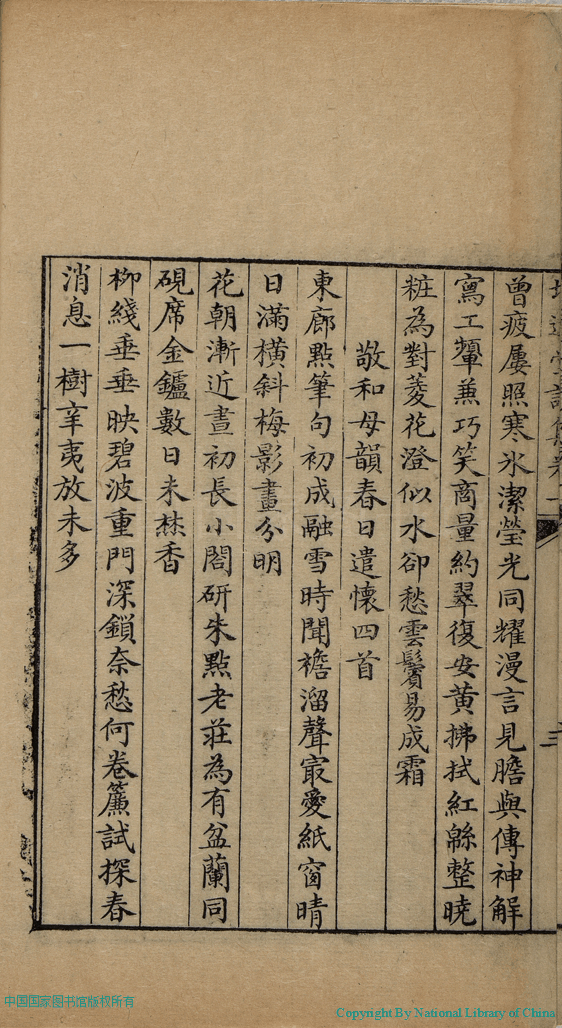 曾疲屢照寒氷潔瑩光同耀漫言見膽與傳神解
寫工顰兼巧笑商量約翠復安黄拂拭紅緜整曉
粧為對菱花澄似水卻愁雲鬢易成霜
敬和母韻春日遣懷四首
東廊點筆句初成融雪時聞檐溜聲㝡愛紙窗晴
日滿横斜梅影畫分明
花朝漸近晝初長小閣研朱點老莊為有盆蘭同
硯席金鑪數日未爇香
柳綫垂垂映碧波重門深鎖奈愁何卷簾試探春
消息一樹辛夷放未多
中国国家图书馆版权所有
Copyright By National Library of China